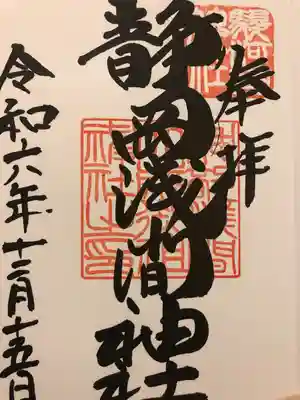 奉拝
静岡浅間神社
令和六年十二月十五日